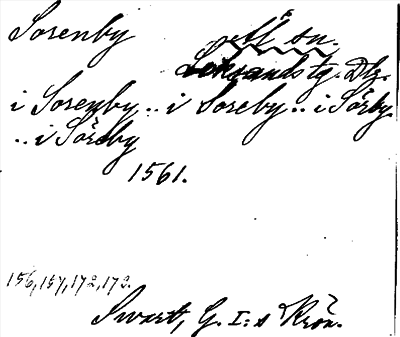 Sorenby
Ål sn.
Leksands tg. Dlr.
i Sorenby .. i Soreby .. i Sörby
.. i Söreby
1561.
156, 157, 172, 173.
Swart, G. I:s Krön.